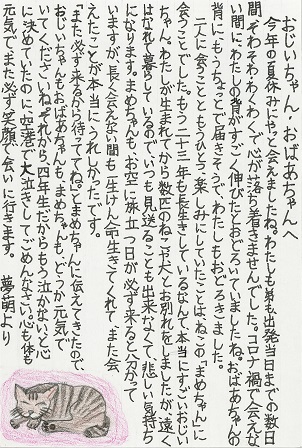 おじいちゃん、おばあちゃんへ
今年の夏休みにやっと会えましたね。わたしも弟も出発当日までの数日
間、ぞわぞわわくわくで、心が落ち着きませんでした。コロナ禍で会えな
い間にわたしの背がすごく伸びたとおどろいていましたね。おばあちゃんの
背にもうちょっとで届きそうで、わたしもおどろきました。
二人に会うこととともうひとつ楽しみにしていたことは、ねこの「まめちゃん」に
会うことでした。もう二十三年も長生きしているなんて本当にすごいおじい
ちゃん。わたしが生まれてから数匹のねこや犬とお別れをしましたが、遠く
はなれて暮らしているのでいつも見送ることも出来なくて、悲しい気持ち
になります。まめちゃんも、お空に旅立つ日が必ず来ると分かって
いますが、長く会えない間も一生けん命生きてくれて、また会
えたことが本当にうれしかったです。
「また必ず来るから待っててね。」とまめちゃんに伝えてきたので、
おじいちゃんもおばあちゃんも、まめちゃんも、どうか元気で
いてくださいね。それから、四年生だからもう泣かないと心
に決めていたのに空港で大泣きしてごめんなさい。心も体も
元気でまた必ず笑顔で会いに行きます。 夢萌より